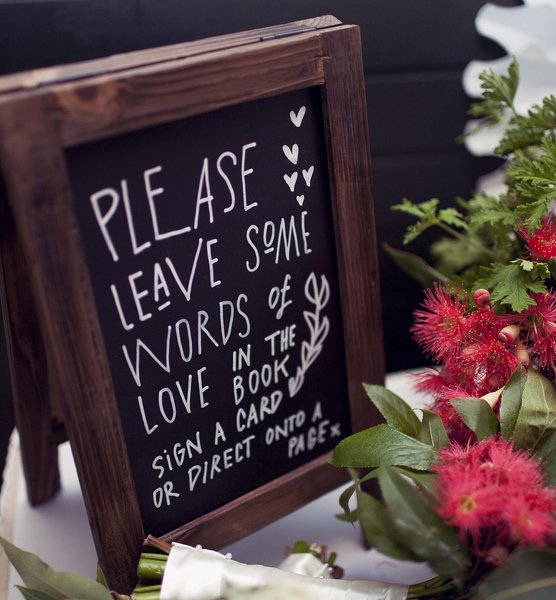 PLEASE
LEAVE SOME
WORDS of
LOVE IN THE
BOOK
SIGN A CARD
OR DIRECT ONTO A
PAGE x